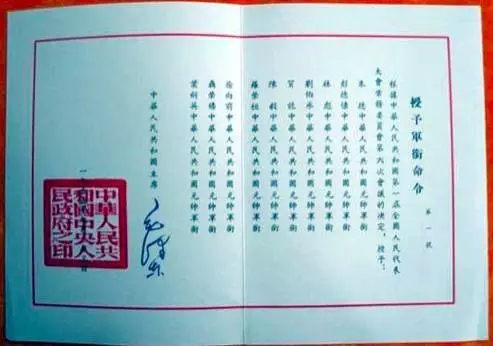 授予軍銜命令
第一號
根據中華人民共和國第一屆全國人民代表
大會常務委員會第六次會議的決定，授予：
朱　德中華人民共和國元帥軍銜
彭德懷中華人民共和國元帥軍銜
林　彪中華人民共和國元帥軍銜
劉伯承中華人民共和國元帥軍銜
賀　龍中華人民共和國元帥軍銜
陳　毅中華人民共和國元帥軍銜
羅榮桓中華人民共和國元帥軍銜
徐向前中華人民共和國元帥軍銜
聶榮臻中華人民共和國元帥軍銜
葉劍英中華人民共和國元帥軍銜
中華人民共和國主席
毛澤東
中華人民共
和國中央人
民政府之印